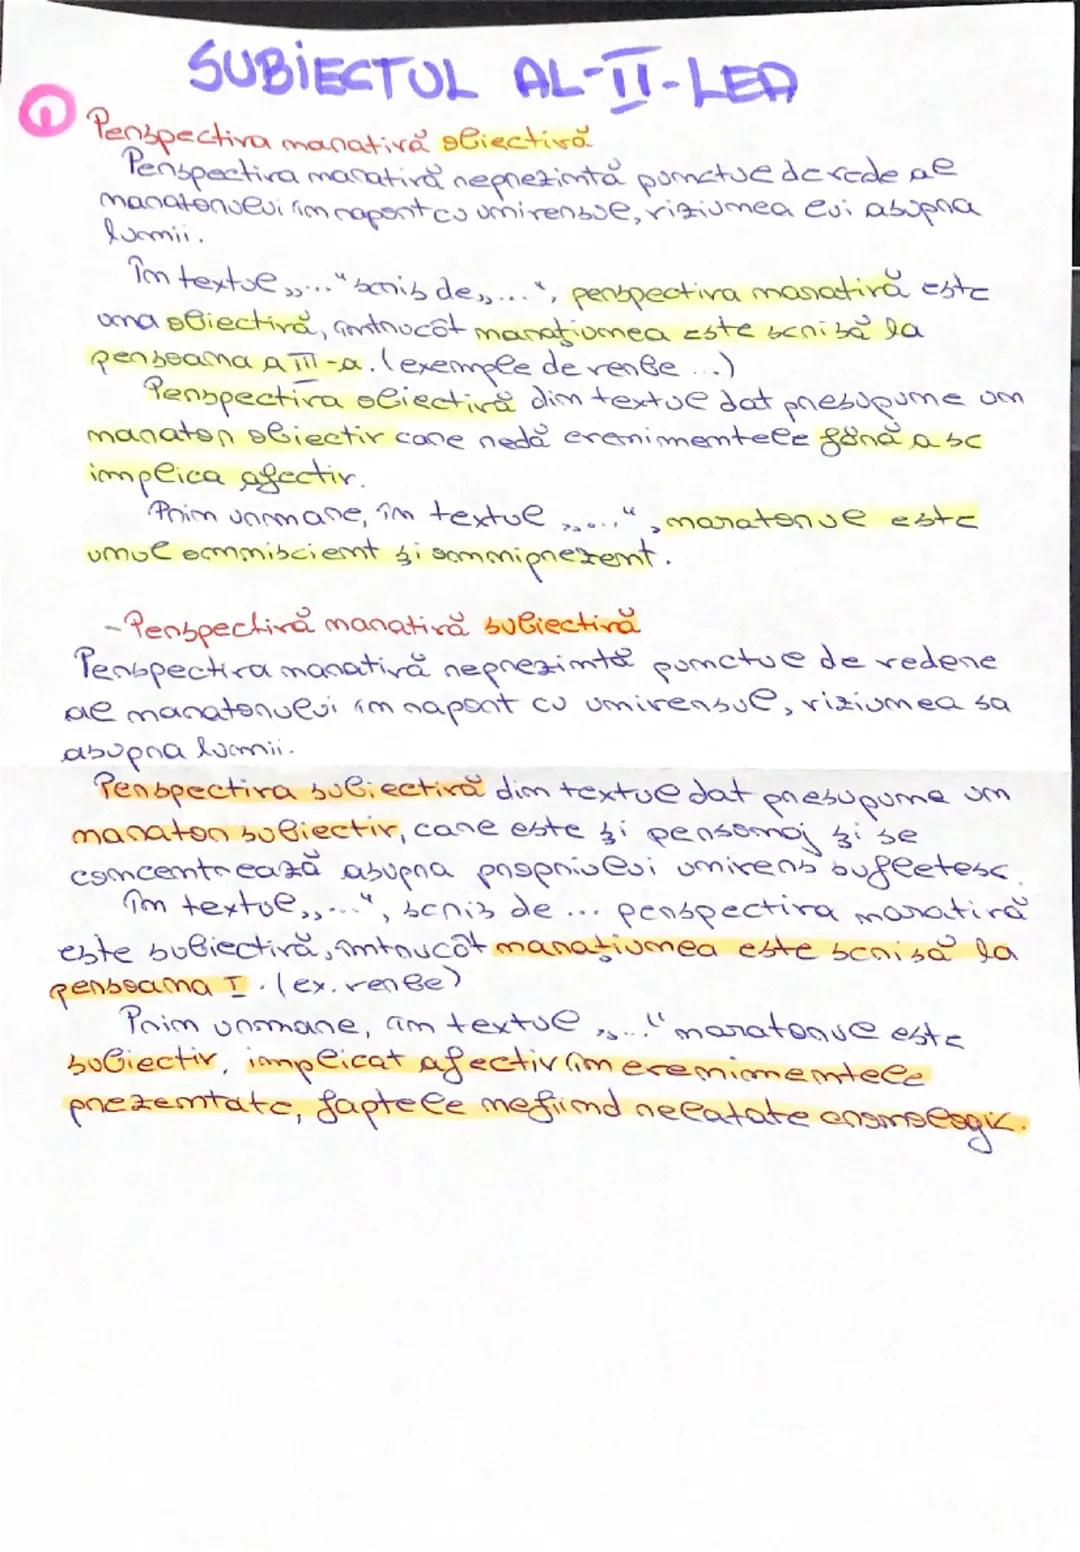 SUBIECTUL AL-II-LEA
1 Perspectiva narativă obiectivă
Perspectiva narativă reprezintă punctul de vede al
naratorului în raport cu universul, viziunea lui asupra
lumii.
În textul „..." scris de „...", perspectiva narativă este
una obiectivă, întrucât narațiunea este scrisă la
persoana a III-a. (exemple de verbe ...)
Perspectiva obiectivă din textul dat presupune un
narator obiectiv care redă evenimentele fără a se
implica afectiv.
Prin urmare, în textul „...", naratorul este
unul omniscient și omniprezent.
- Perspectivă narativă subiectivă
Perspectiva narativă reprezintă punctul de vedere
al naratorului în raport cu universul, viziunea sa
asupra lumii.
Perspectiva subiectivă din textul dat presupune un
narator subiectiv, care este și personaj și se
concentrează asupra propriului univers sufletesc.
În textul „...", scris de ... perspectiva narativă
este subiectivă, întrucât narațiunea este scrisă la
persoana I. (ex. verbe)
Prin urmare, în textul „..." naratorul este
subiectiv, implicat afectiv în evenimentele
prezentate, faptele nefiind relatate cronologic.